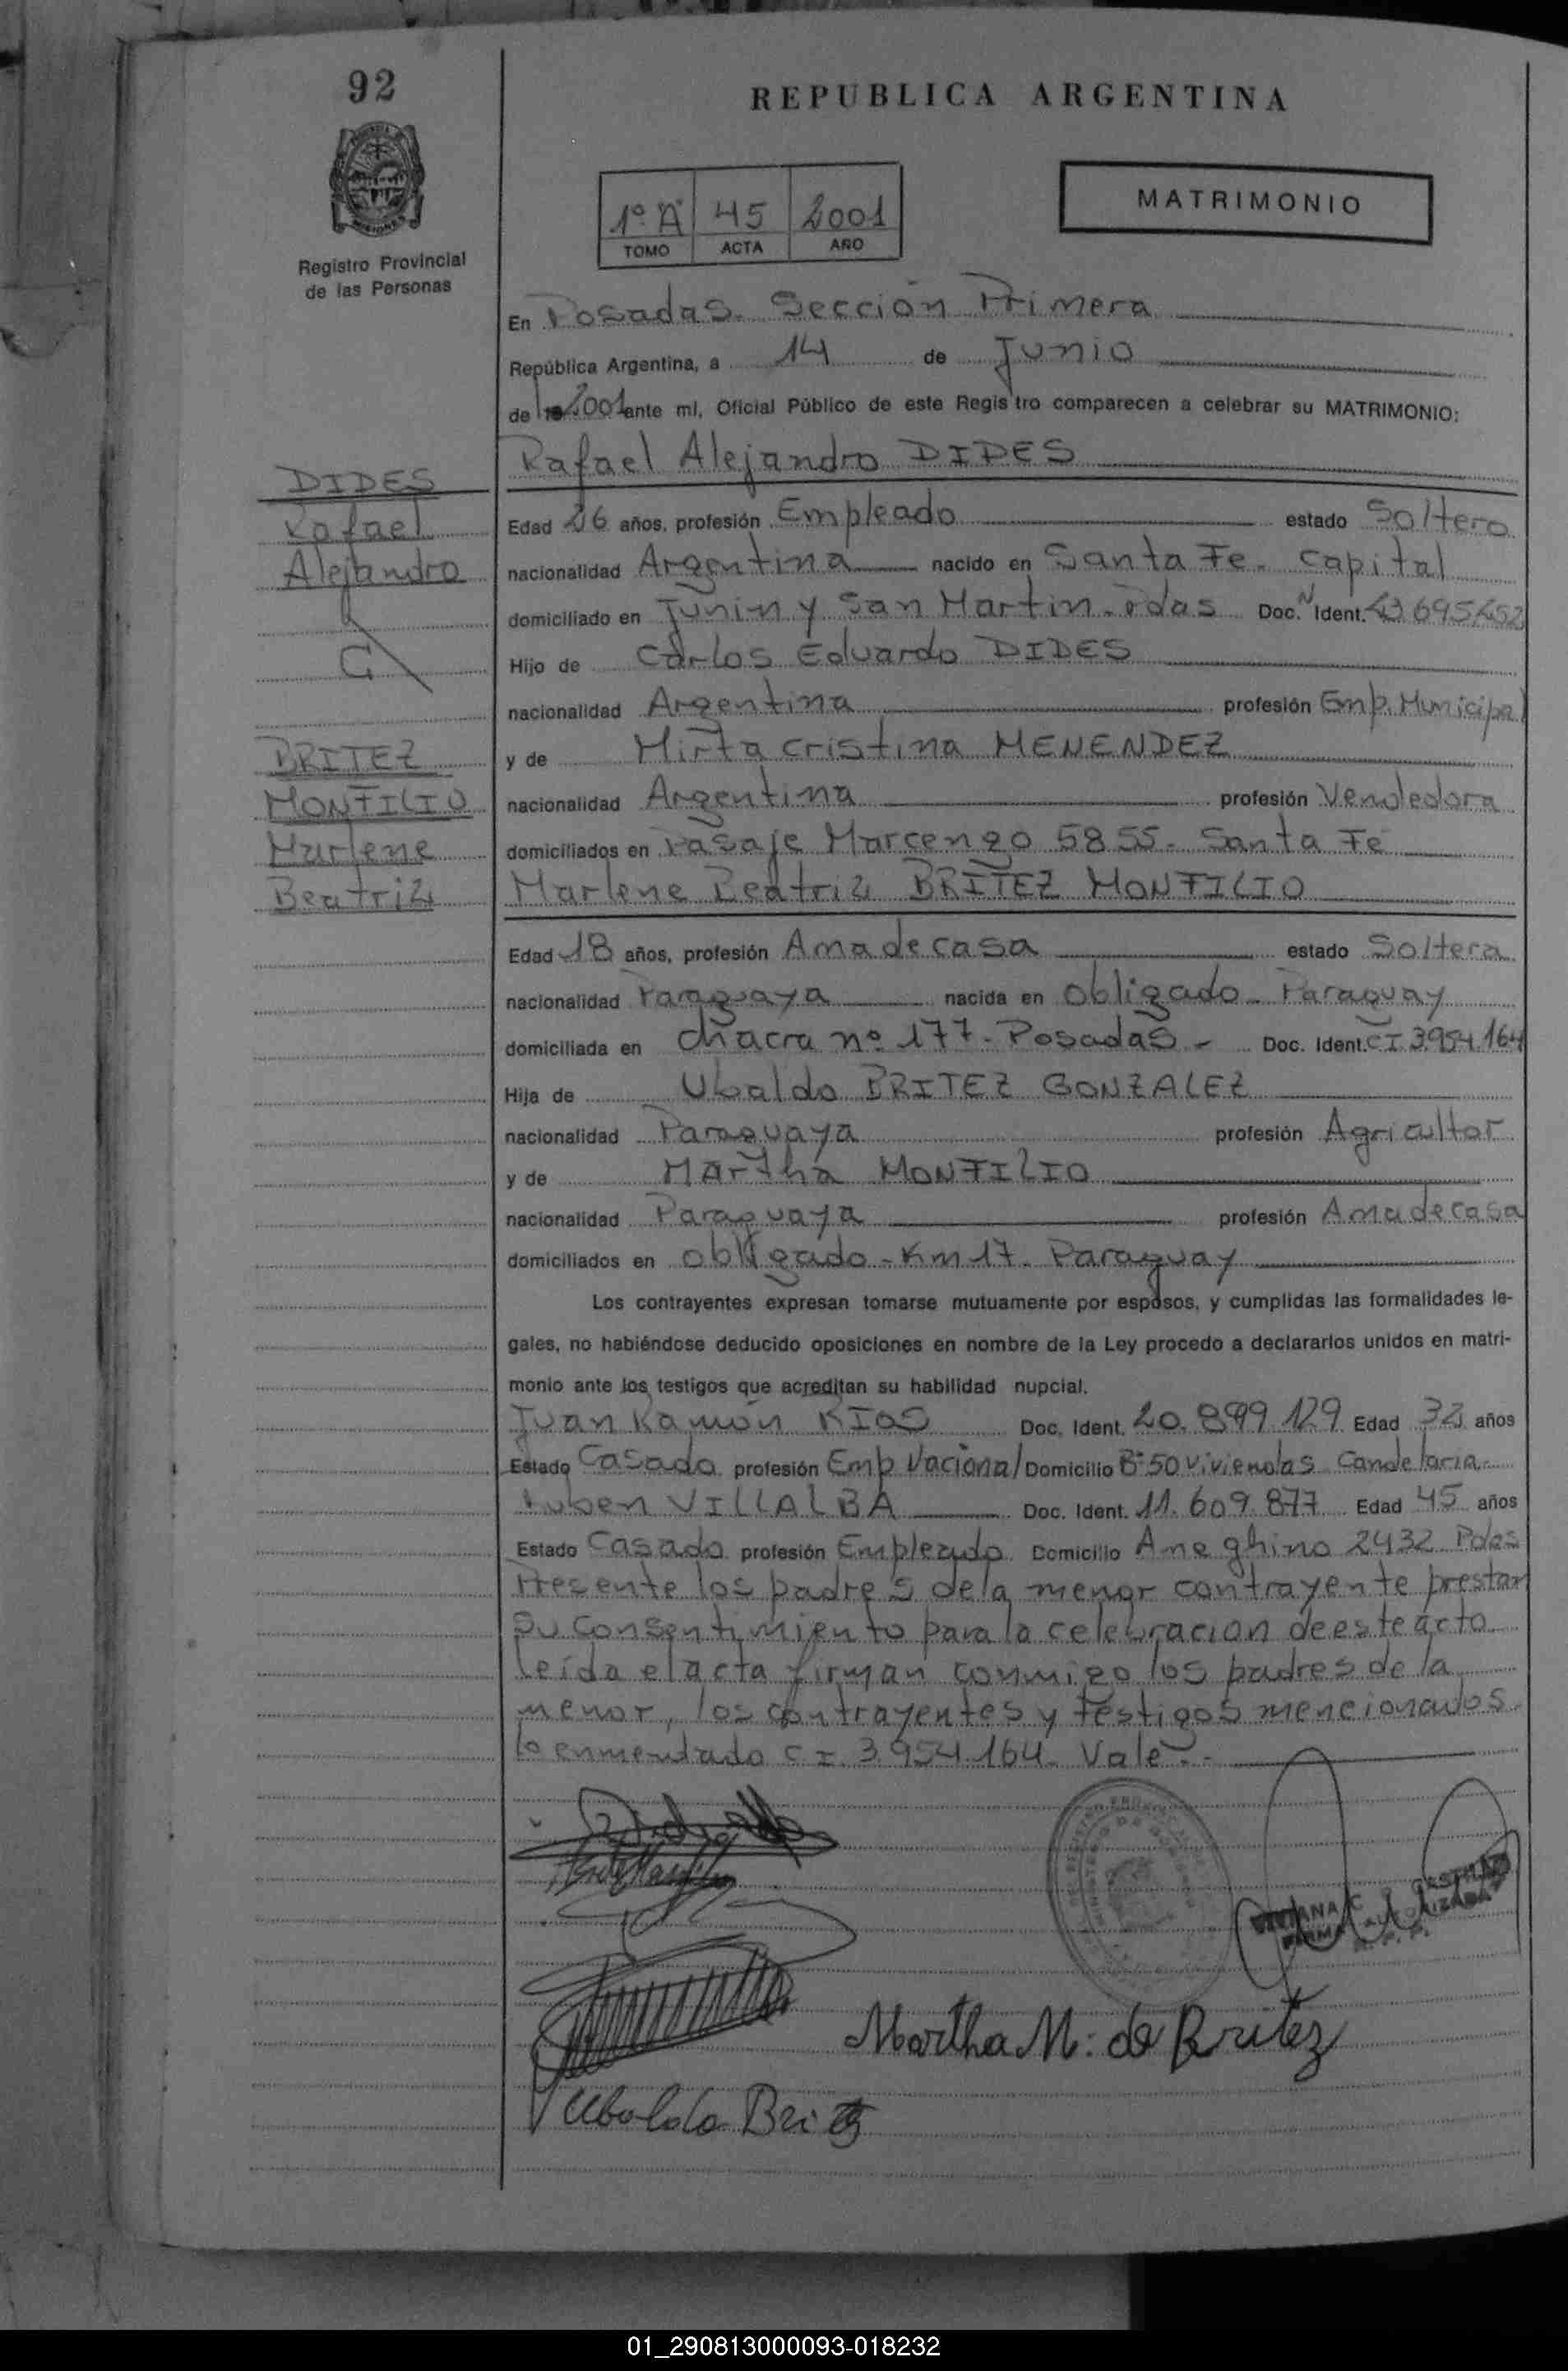 92
REPUBLICA ARGENTINA
Registro Provincial
de las Personas
1º "A" 45 2001
TOMO ACTA AÑO
MATRIMONIO
En Posadas. Sección Primera
República Argentina, a 14 de Junio
de 2001 ante mí, Oficial Público de este Registro comparecen a celebrar su MATRIMONIO:
Rafael Alejandro DIDES
DIDES
Rafael
Alejandro
Edad 26 años, profesión Empleado estado Soltero
nacionalidad Argentina nacido en Santa Fe. Capital
domiciliado en Junin y San Martin. Pdas Doc. Ident.
Hijo de Carlos Eduardo DIDES
nacionalidad Argentina profesión Emp. Municipal
y de Mirta Cristina MENENDEZ
nacionalidad Argentina profesión Vendedora
domiciliados en Pasaje Marcengo 5855. Santa Fe
BRITEZ
MONFILIO
Marlene
Beatriz
Marlene Beatriz BRITEZ MONFILIO
Edad 18 años, profesión Ama de casa estado Soltera
nacionalidad Paraguaya nacida en Obligado. Paraguay
domiciliada en chacra nº 177. Posadas - Doc. Ident. CI 3.954.164
Hija de Ubaldo BRITEZ GONZALEZ
nacionalidad Paraguaya profesión Agricultor
y de Martha MONFILIO
nacionalidad Paraguaya profesión Ama de casa
domiciliados en obligado - Km 17. Paraguay
Los contrayentes expresan tomarse mutuamente por esposos, y cumplidas las formalidades le-
gales, no habiéndose deducido oposiciones en nombre de la Ley procedo a declararlos unidos en matri-
monio ante los testigos que acreditan su habilidad nupcial.
Juan Ramón RIOS Doc. Ident. 20.899.129 Edad 32 años
Estado Casado profesión Emp Nacional Domicilio Bº 50 viviendas Candelaria
Ruben VILLALBA Doc. Ident. 11.609.877 Edad 45 años
Estado Casado profesión Empleado Domicilio Ameghino 2432 Pdas
Presente los padres de la menor contrayente prestan
su consentimiento para la celebracion de este acto
leída el acta firman conmigo los padres de la
menor, los contrayentes y testigos mencionados.
lo enmendado C.I. 3.954.164. Vale.-
Martha M. de Britez
Ubaldo Britez
01_290813000093-018232